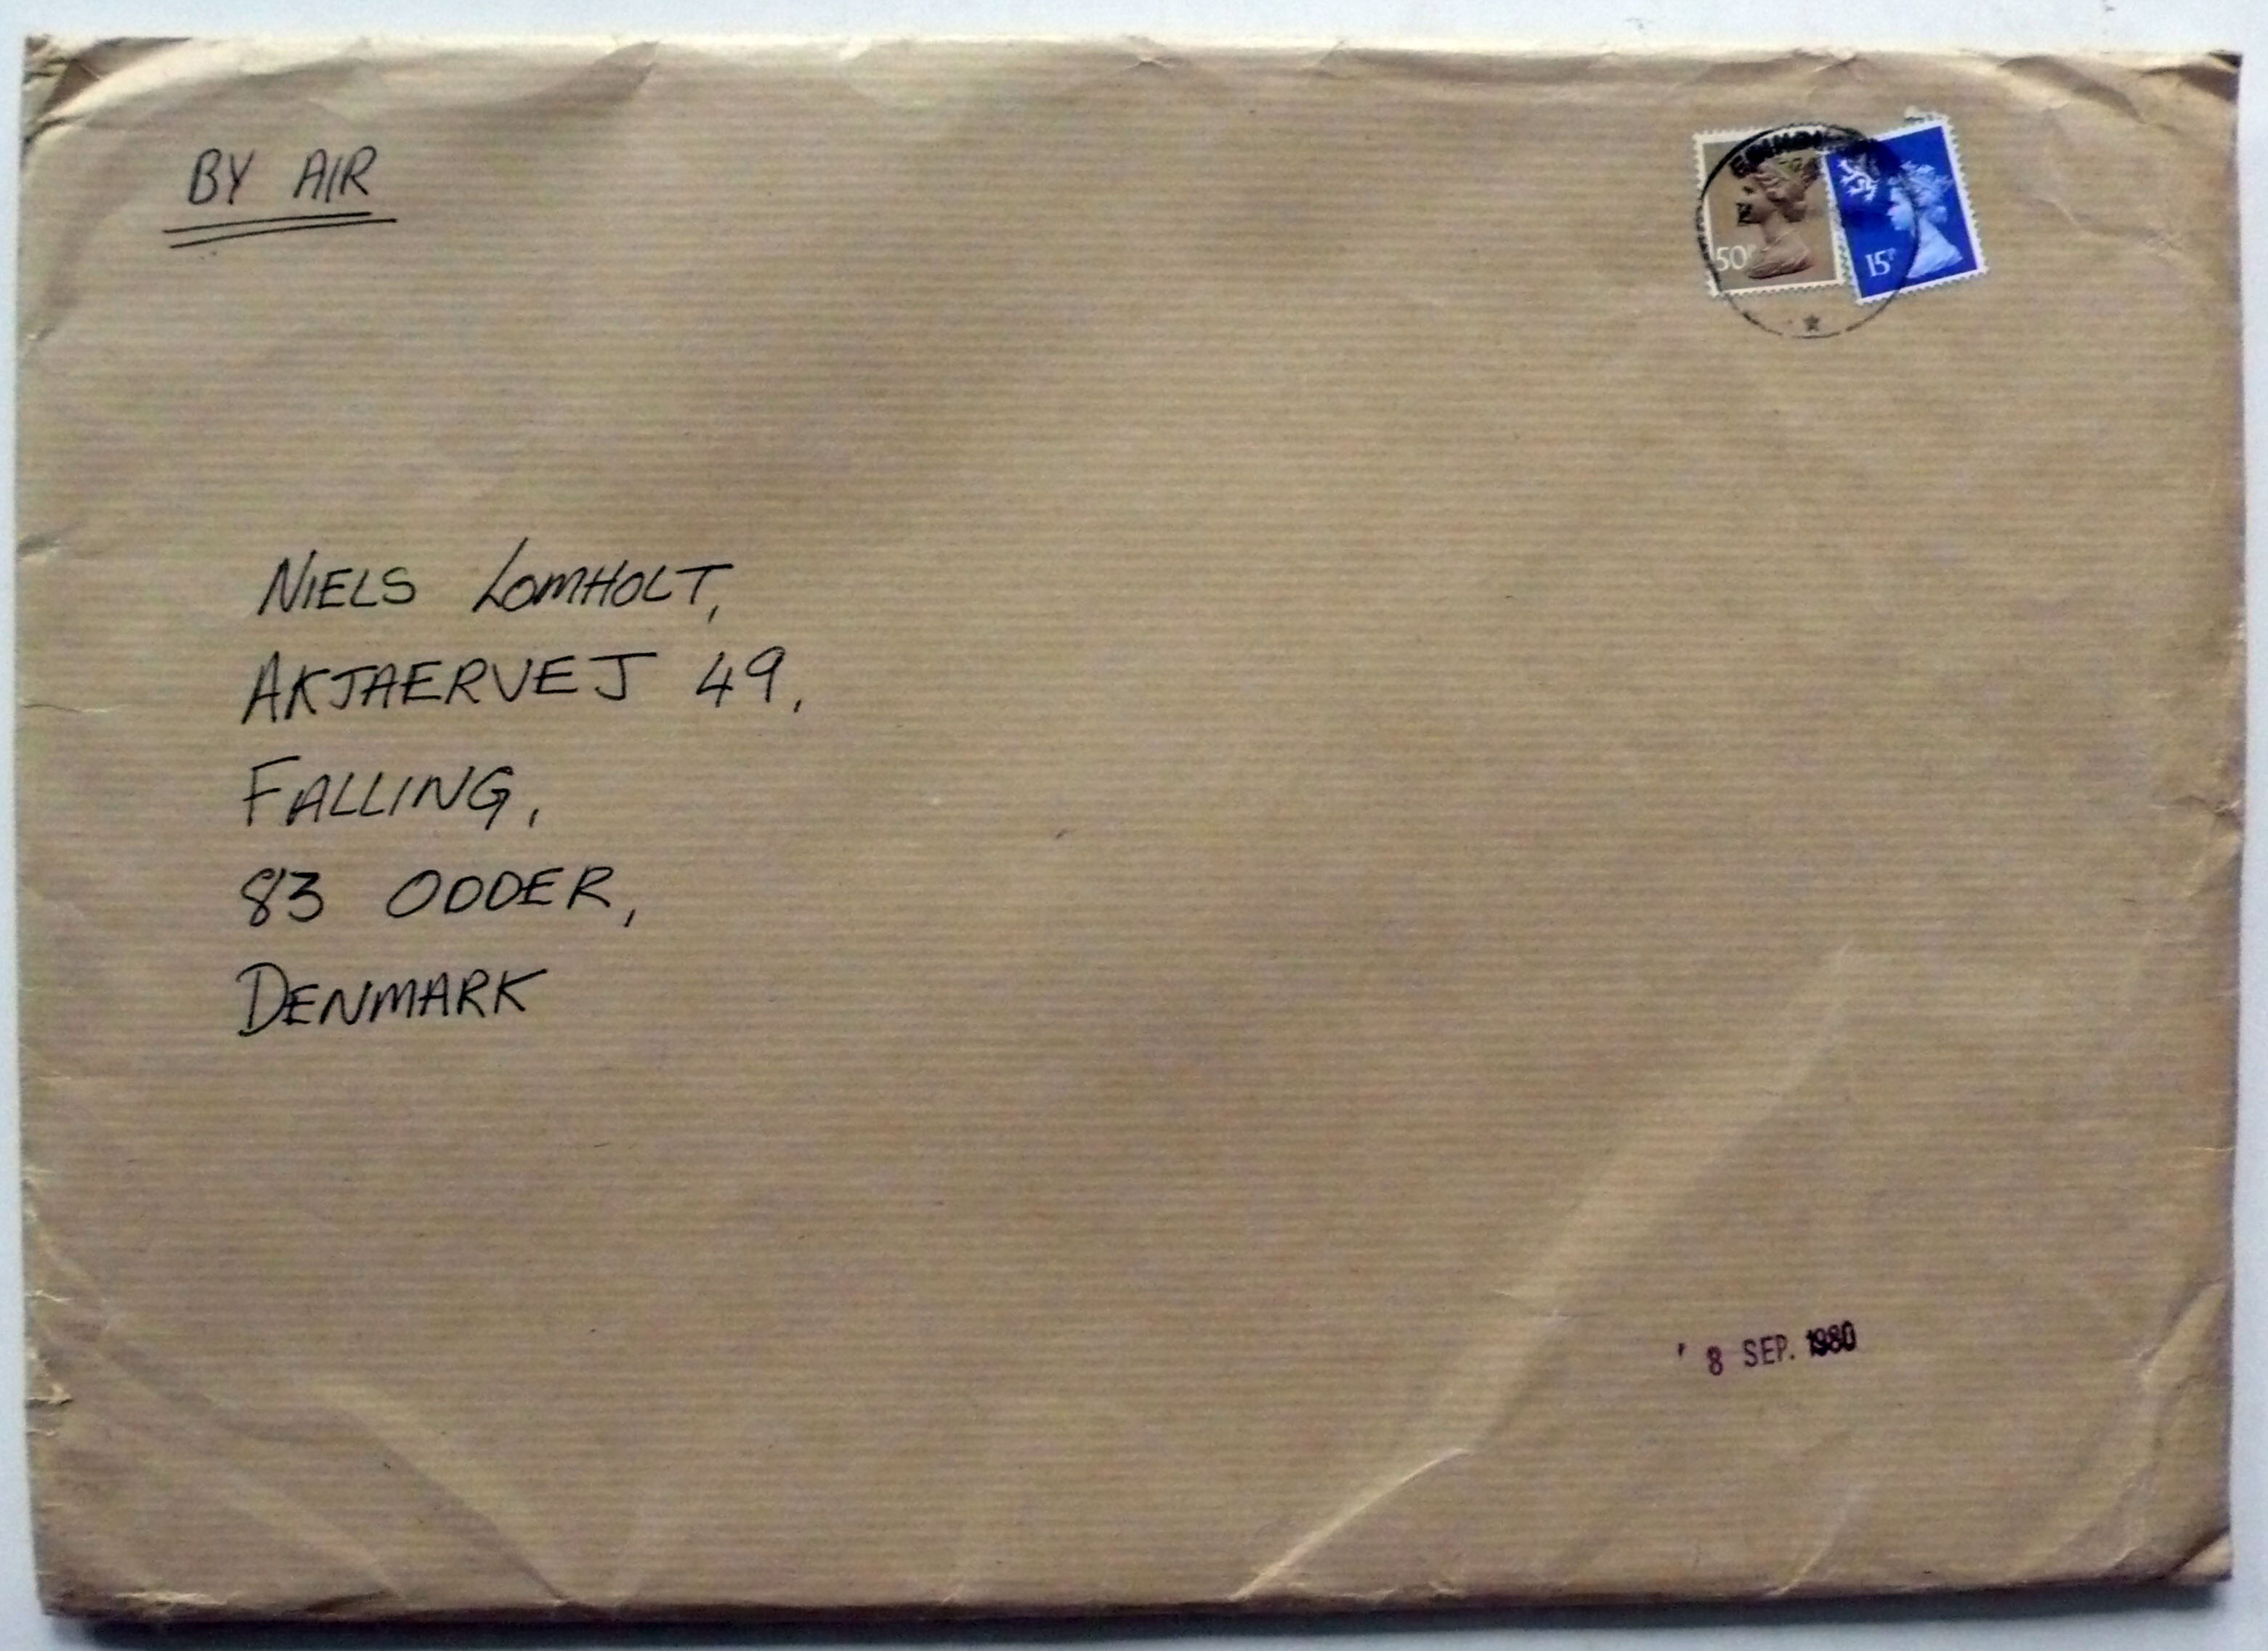 BY AIR
50P
15P
NIELS LOMHOLT,
AKJAERVEJ 49,
FALLING,
83 ODDER,
DENMARK
8 SEP. 1980